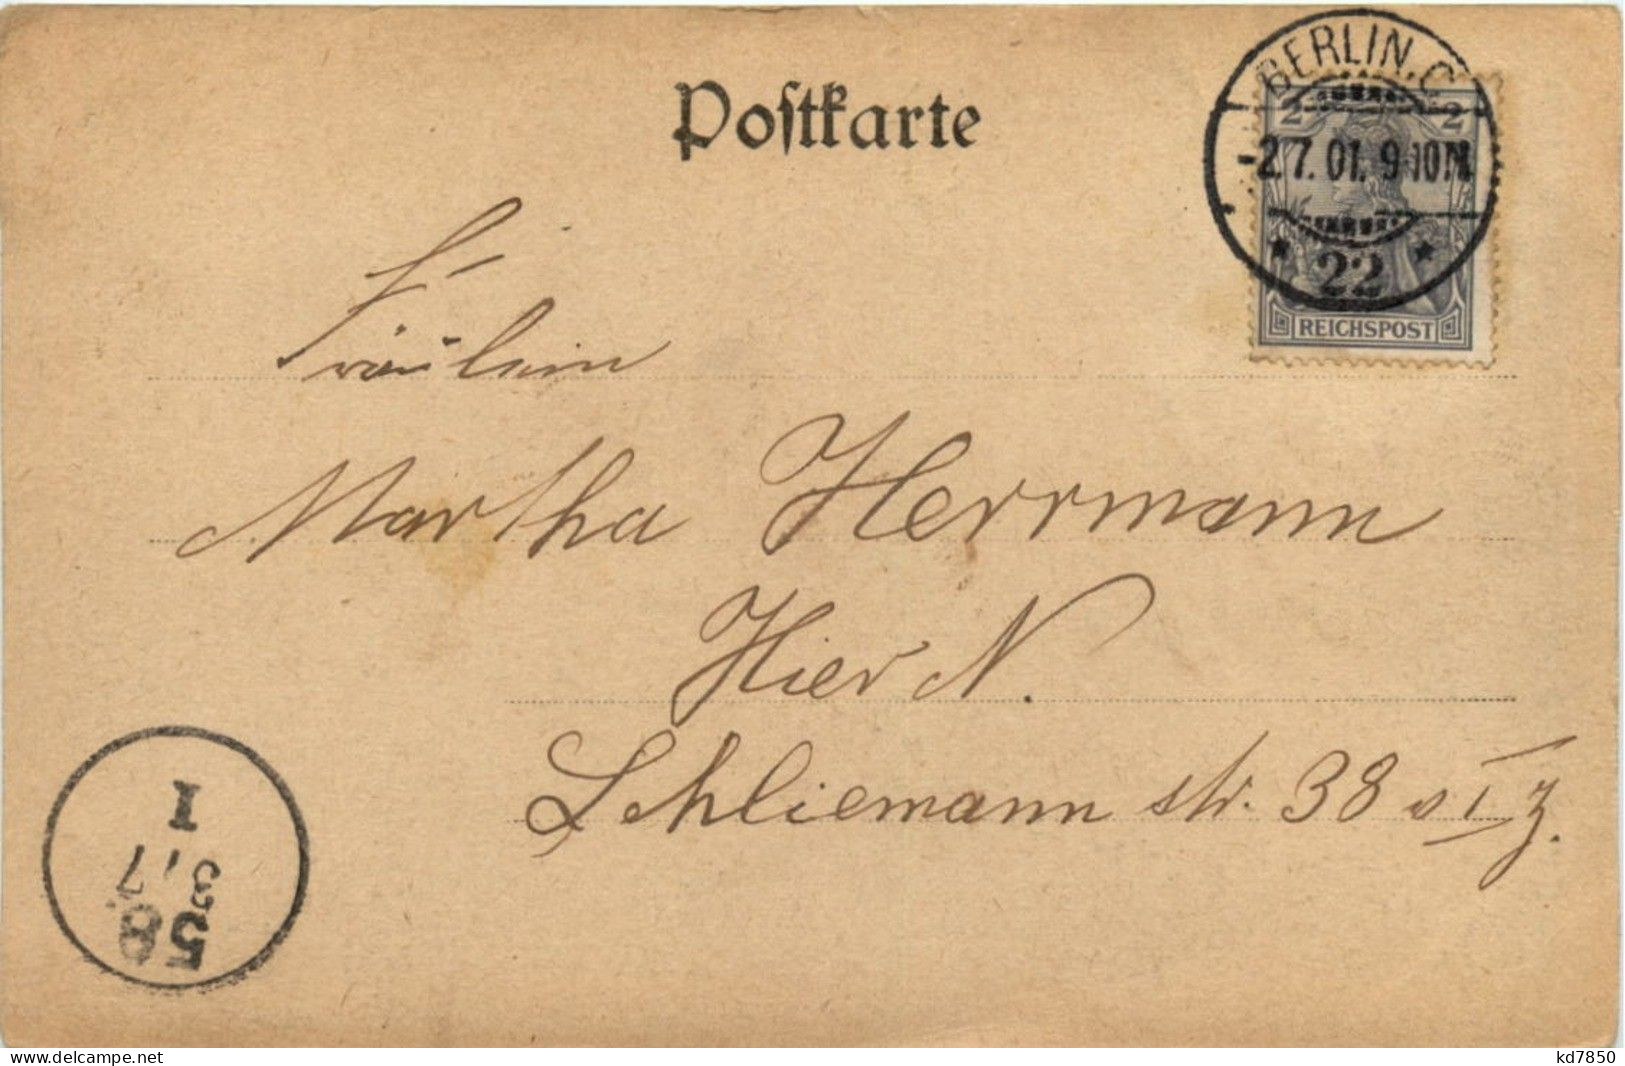 Postkarte
BERLIN. C.
2 2
-2.7.01. 9-10N.
* 22 *
REICHSPOST
Fräulein
Martha Herrmann
Hier N.
Schliemann str. 38 v I
I
3/7
58
www.delcampe.net
kd7850